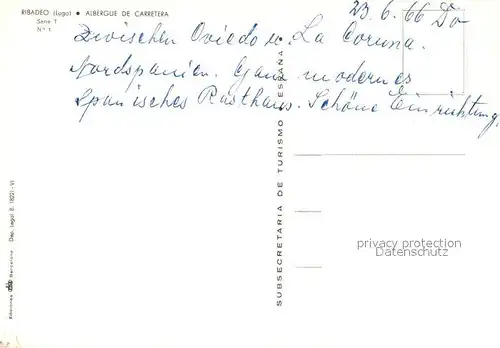 RIBADEO (Lugo) • ALBERGUE DE CARRETERA
Serie T
N.º 1
23.6.66 Do
Zwischen Oviedo u. La Coruna.
Nordspanien. Ganz modernes
Spanisches Rasthaus. Schöne Einrichtung.
SUBSECRETARIA DE TURISMO ESPAÑA
Dep. Legal B. 18221-VI
Ediciones Barcelona
privacy protection
watermark